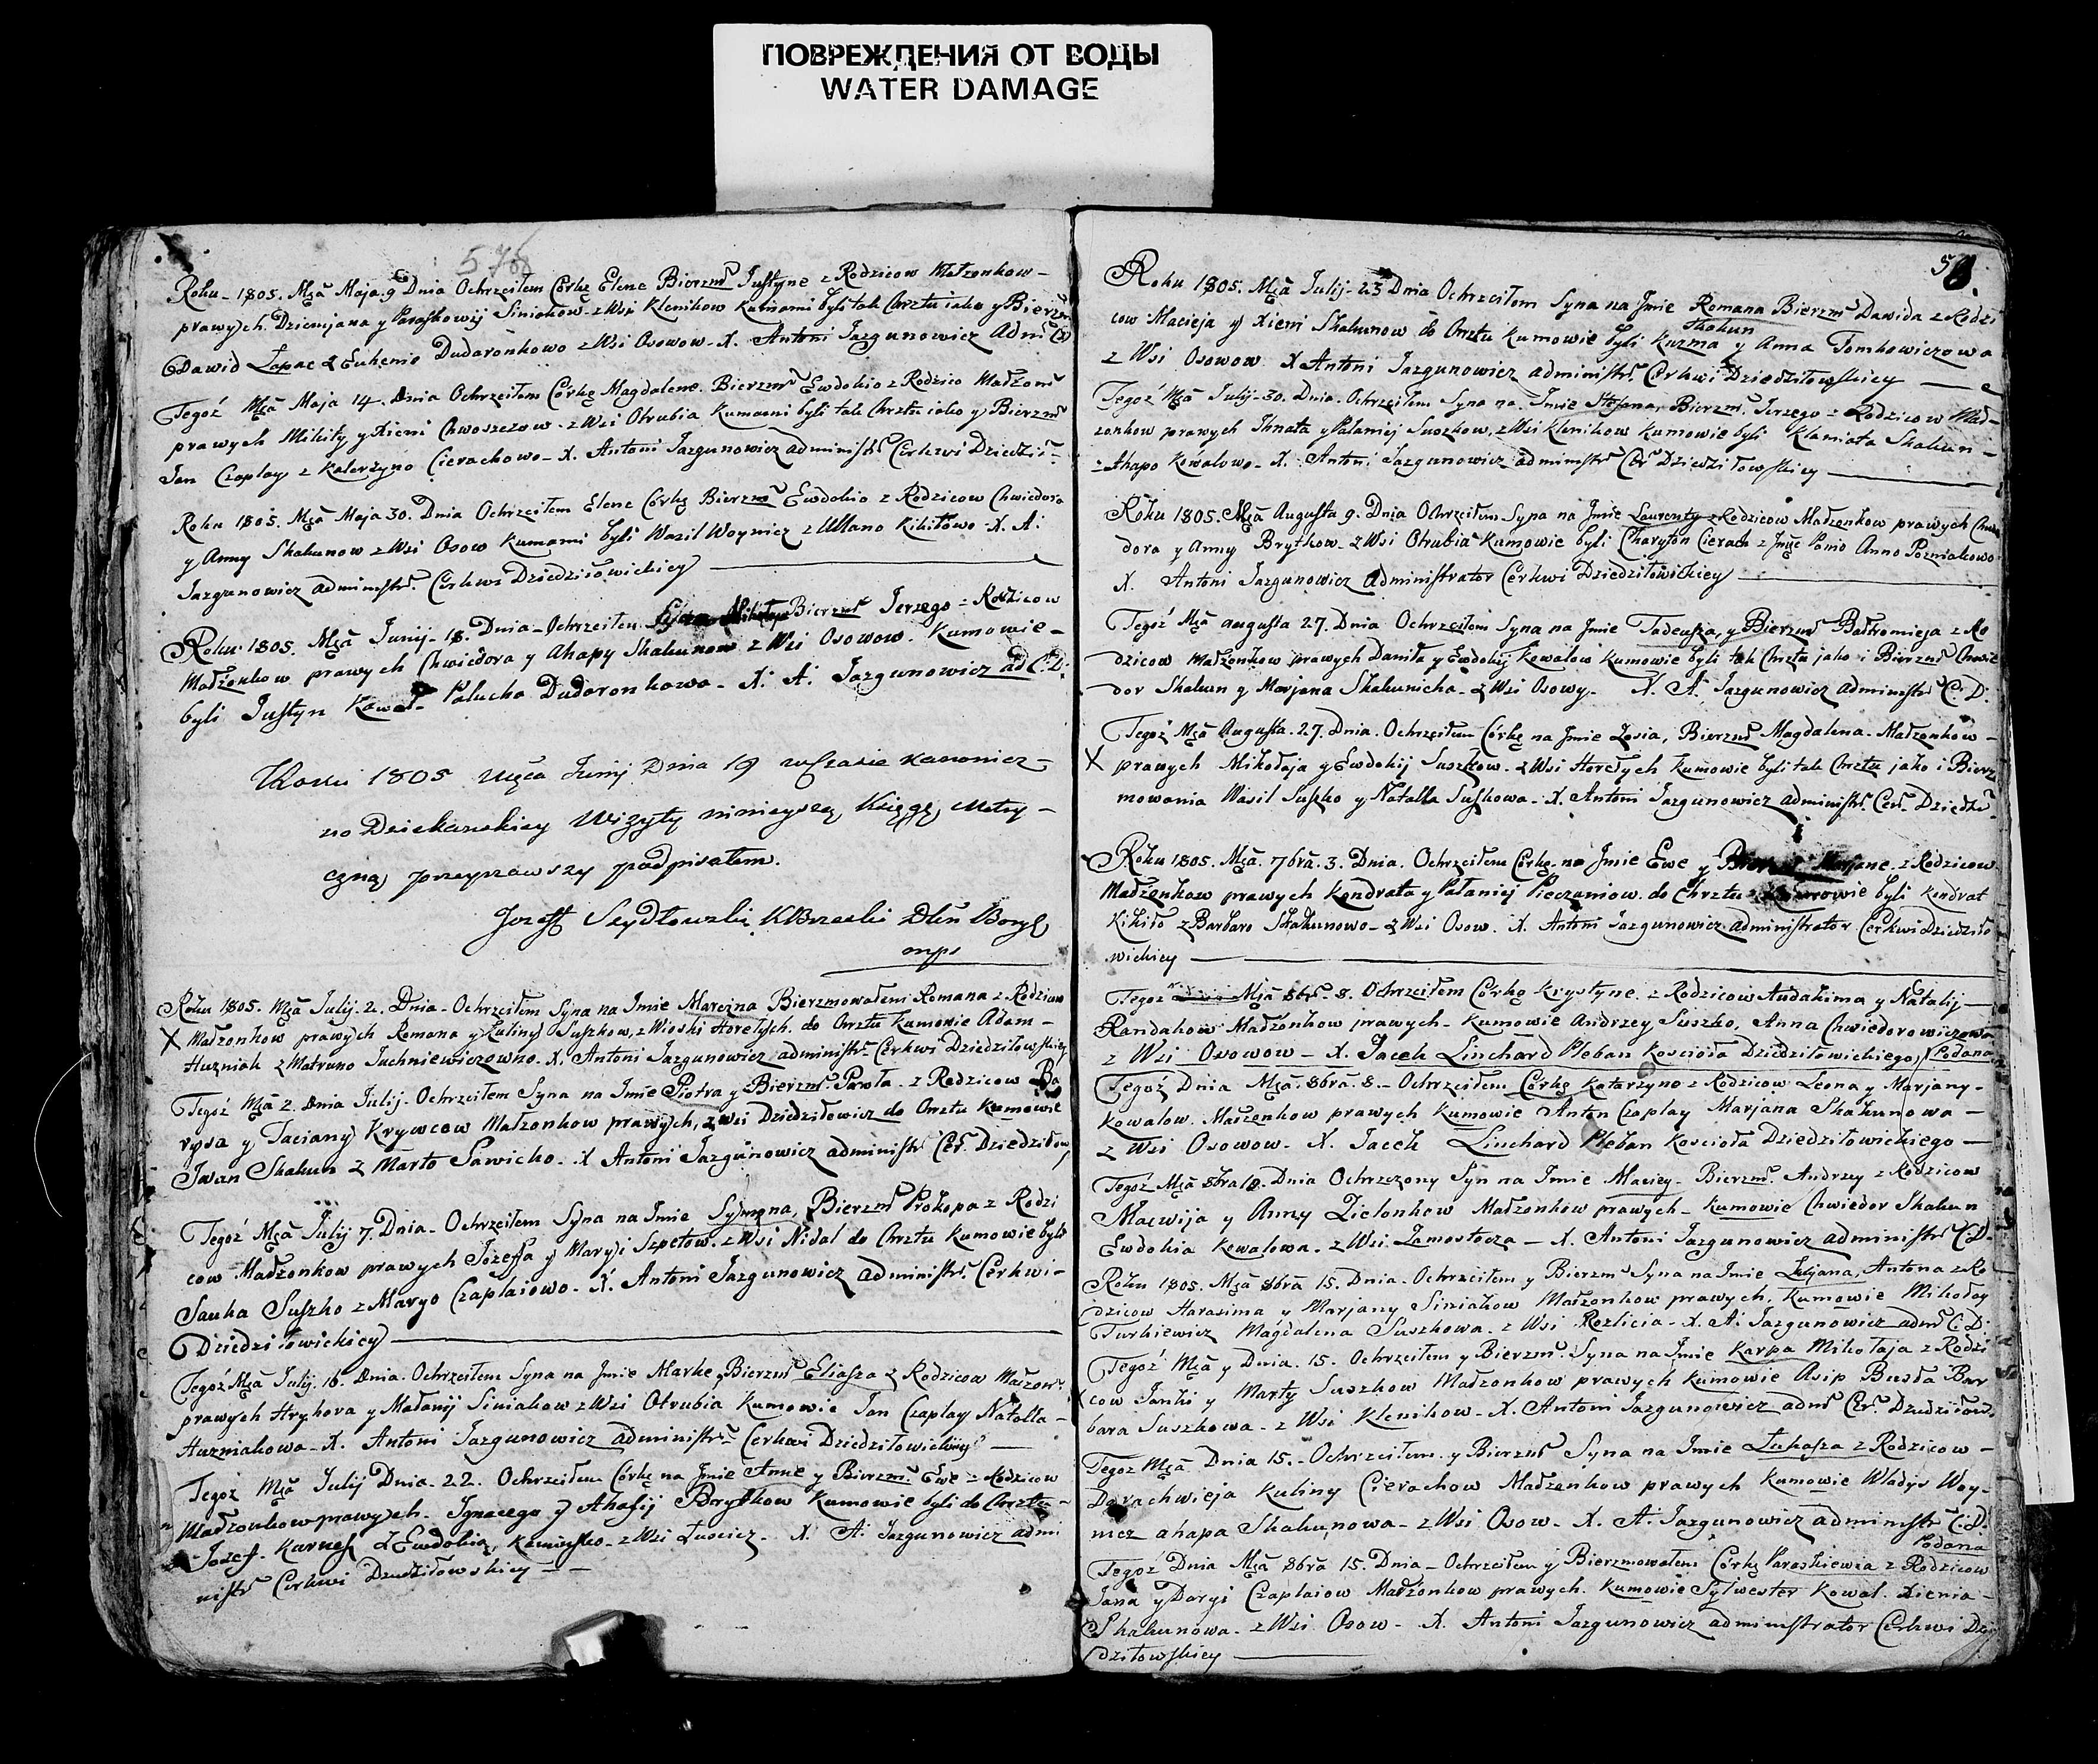 ПОВРЕЖДЕНИЯ ОТ ВОДЫ
WATER DAMAGE
Roku - 1805. Mca Maja 9 Dnia Ochrzciłem Córkę Elenę Bierzm Justynę z Rodzicow Małzonkow -
prawych Dziemjana y Paraskowij Siniakow - z Wsi Klenikow Kumami byli tak Chrztu iako y Bierzm
Dawid Łapac z Euhenio Dudaronkowo z Wsi Osowow - X. Antoni Jazgunowicz Admi
Tegoż Mca Maja 14. Dnia Ochrzciłem Córkę Magdalenę. Bierzm Ewdokio z Rodzico Małżon
prawych Mikity y Xieni Chwoszczow - z Wsi Otrubia Kumami byli tak Chrztu iako y Bierzm
Jan Czaplay z Katerzyno Cierachowo - X. Antoni Jazgunowicz administr Cerkwi Dziedzi-
Roku 1805. Mca Maja 30. Dnia Ochrzciłem Elenę Córkę Bierzm Ewdokio z Rodzicow Chwiedora
y Anny Skakunow z Wsi Osow Kumami byli Wasil Woynicz z Ullano Kikiłowo - X. A.
Jazgunowicz administr. Cerkwi Dziedziłowickiey
Roku 1805. Mca Junij - 18. Dnia - Ochrzciłem Bierzm Jerzego z Rodzicow
Małżonkow prawych Chwiedora y Ahapy Skakunow z Wsi Osowow. Kumowie -
byli Justyn Kowal Palucha Dudaronkowa - X. A. Jazgunowicz ad C. D.
Roku 1805 Mca Junij Dnia 19 w Czasie kanonicz-
no Dziekanskiey Wizyty ninieyszą Księgę Metry-
czną przeyrzawszy podpisałem.
Jozeff Szydłowski KBrzeski Dkn Borys
mps
Roku 1805. Mca Julij. 2. Dnia - Ochrzciłem Syna na Imie Marcina Bierzmowałem Romana z Rodzicow
X Małzonkow prawych Romana y Kuliny Suszkow, z Wioski Horełych. do Chrztu Kumowie Adam -
Huzniak z Matruno Juchniewiczowno. X. Antoni Jazgunowicz administr. Cerkwi Dziedziłowskiey
Tegoż Mca 2. Dnia Julij. Ochrzciłem Syna na Imie Piotra y Bierzm Pawła - z Rodzicow Bo
rysa y Taciany Krywcow Małzonkow prawych, z wsi Dziedziłowicz do Chrztu Kumowie
Iwan Skakun z Marto Sawicko. X Antoni Jazgunowicz administr Cer. Dziedziłow
Tegoż Mca Julij 7. Dnia - Ochrzciłem Syna na Imie Symona, Bierzm Prokopa z Rodzi
cow Małżonkow prawych Jozeffa y Maryi Szpetow. z Wsi Nidal do Chrztu Kumowie byli
Sauka Suszko z Maryo Czaplaiowo - X. Antoni Jazgunowicz administr. Cerkwi -
Dziedziłowickiey
Tegoż Mca Julij. 16. Dnia. Ochrzciłem Syna na Imie Marka Bierzm Eliasza z Rodzicow Małzon.
prawych Hryhora y Małanij Siniakow z Wsi Otrubia Kumowie Jan Czaplay Natalla -
Huzniakowa - X. Antoni Jazgunowicz administr Cerkwi Dziedziłowickiey
Tegoż Mca Julij Dnia - 22. Ochrzciłem Córkę na Jmie Annę y Bierzm. Ewę z Rodzicow
Małżonkow prawych. Ignacego y Ahafij Borytkow Kumowie byli do Chrztu -
Jozef - Karnes z Ewdokia, Kaminsko - z Wsi Łuocicz - X. A. Jazgunowicz admi
nistr Cerkwi Dziedziłowskiey
Roku 1805. Mca Julij - 23 Dnia Ochrzciłem Syna na Jmie Romana Bierzm Dawida z Rodzi
cow Macieja y Xieni Skakunow do Chrztu Kumowie byli Kuzma Skakun y Anna Tomkowiczowa
z Wsi Osowow. X Antoni Jazgunowicz administr. Cerkwi Dziedziłowskiey
Tegoż Mca Julij - 30. Dnia. Ochrzciłem Syna na Imie Stefana, Bierzm. Jerzego z Rodzicow Mał-
zonkow prawych Ihnata y Pałaniej Suszkow, z Wsi Klenikow Kumowie byli Klamiata Skakun -
z Ahapo Kowalowo - X. Antoni Jazgunowicz administr Cer Dziedziłowskiey
Roku 1805. Mca Augusta 9. Dnia Ochrzciłem Syna na Jmie Laurenty z Rodzicow Małzonkow prawych Chwie
dora y Anny Brytkow - z Wsi Otrubia Kumowie byli Charyton Cierach z Jmc Panio Anno Pozniakowo
X. Antoni Jazgunowicz Administrator Cerkwi Dziedziłowickiey
Tegoż Mca augusta 27. Dnia Ochrzciłem Syna na Jmie Tadeusza, y Bierzm Bałtromieja z Ro
dzicow Małzonkow prawych Daniła y Ewdokij Kowalow Kumowie byli tak Chrztu jako i Bierzm Chwie
dor Skakun y Marjana Skakunicha - z Wsi Osowy - X. A. Jazgunowicz administr C. D.
Tegoż Mca Augusta - 27. Dnia. Ochrzciłem Córkę na Jmie Zosia, Bierzm Magdalena. Małzonkow -
X prawych Mikołaja y Ewdokij Suszkow - z Wsi Horełych Kumowie byli tak Chrztu jako i Bierz
mowania Wasil Suszko y Natalla Suszkowa - X. Antoni Jazgunowicz administr. Cer. Dziedzi
Roku 1805. Mca. 7bra. 3. Dnia. Ochrzciłem Córkę na Jmie Ewę y Marjanę - z Rodzicow
Małzonkow prawych Kondrata y Pałaniej Pieczaniow. do Chrztu Kumowie byli Kondrat
Kikiło z Barbaro Skakunowo - z Wsi Osow. X. Antoni Jazgunowicz administrator Cerkwi Dziedziło
wickiey
Tegoż Mca 8br. 8. Ochrzciłem Córkę Krystynę - z Rodzicow Audakima y Natalij -
Randakow Małżonkow prawych - Kumowie Andrzey Suszko, Anna Chwiedorowiczowa
z Wsi Osowow - X. Jacek Linchard Pleban Kościoła Dziedziłowickiego Podana
Tegoż Dnia Mca. 8bra. 8. - Ochrzciłem Córkę Katarzynę z Rodzicow Leona y Marjany -
Kowalow. Małżonkow prawych Kumowie Anton Czaplay Marjana Skakunowa -
z Wsi Osowow - X. Jacek Linchard Pleban Kościoła Dziedziłowickiego
Tegoż Mca 8bra 8. Dnia Ochrzczony Syn na Imie Maciey - Bierzm. Andrzey z Rodzicow
Macwija y Anny Zielonkow Małzonkow prawych - Kumowie Chwiedor Skakun
Ewdokia Kowalowa. z Wsi. Zamostocza - X. Antoni Jazgunowicz administr C. D.
Roku 1805. Mca 8bra 15. Dnia - Ochrzciłem y Bierzm Syna na Imie Lucjana, Antona z Ro
dzicow Harasima y Marjany Siniakow Małzonkow prawych. Kumowie Mikołoy
Turkiewicz Magdalena Suszkowa - z Wsi Rozlicia - X. A. Jazgunowicz adm C. D.
Tegoż Mca y Dnia. 15. Ochrzciłem y Bierzm. Syna na Imie Karpa Mikołaja z Rodzi
cow Janki y Marty Suszkow Małżonkow prawych Kumowie Asip Busła Bar
bara Suszkowa - z Wsi Klenikow - X. Antoni Jazgunowicz adm Cer. Dziedziłow.
Tegoż Mca Dnia 15. - Ochrzciłem y Bierzm Syna na Imie Łukasza z Rodzicow -
Darachwieja Kuliny Cierachow Małzonkow prawych Kumowie Władys Woy-
nicz ahapa Skakunowa - z Wsi Osow - X. A. Jazgunowicz administr C. D.
Podana
Tegoż Dnia Mca 8bra 15. Dnia - Ochrzciłem y Bierzmowałem Córkę Paraskiewia z Rodzicow
Jana y Daryi Czaplaiow Małżonkow prawych. Kumowie Sylwester Kowal. Xienia -
Skakunowa - z Wsi Osow - X. Antoni Jazgunowicz administrator Cerkwi Dzie
dziłowskiey